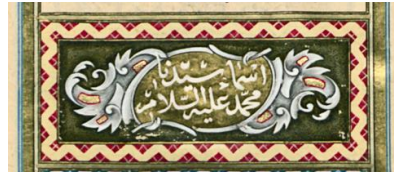 اسماء سيدنا
محمد عليه السلام